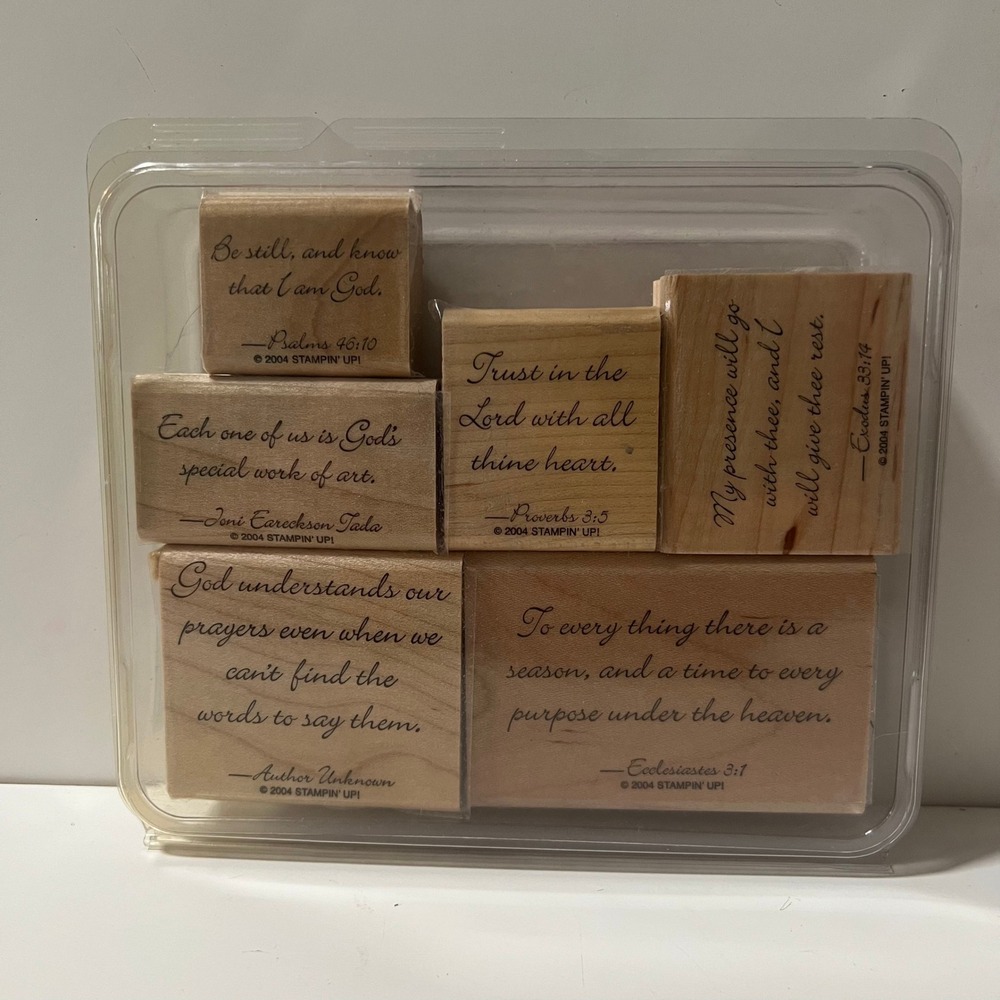 Be still, and know
that I am God.
—Psalms 46:10
© 2004 STAMPIN' UP!
Each one of us is God's
special work of art.
—Joni Eareckson Tada
© 2004 STAMPIN' UP!
Trust in the
Lord with all
thine heart.
—Proverbs 3:5
© 2004 STAMPIN' UP!
My presence will go
with thee, and I
will give thee rest.
—Exodus 33:14
© 2004 STAMPIN' UP!
God understands our
prayers even when we
can't find the
words to say them.
—Author Unknown
© 2004 STAMPIN' UP!
To every thing there is a
season, and a time to every
purpose under the heaven.
—Ecclesiastes 3:1
© 2004 STAMPIN' UP!